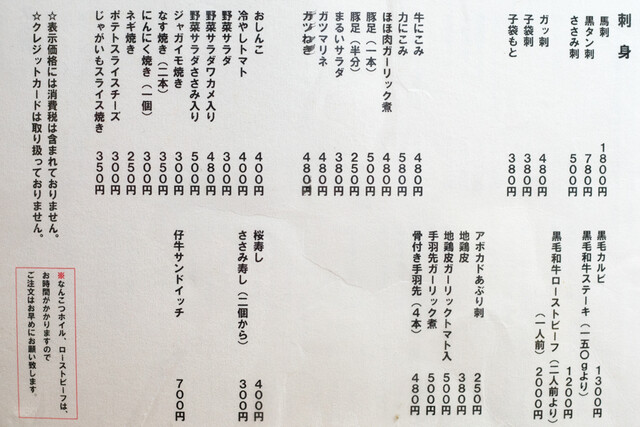 刺身
馬刺 1800円
黒タン刺 780円
ささみ刺 500円
ガッ刺 480円
子袋刺 380円
子袋もと 380円
牛にこみ 480円
力にこみ 580円
ほほ肉ガーリック煮 480円
豚足（一本） 500円
豚足（半分） 250円
まるいサラダ 380円
ガツマリネ 480円
ガツねぎ 480円
おしんこ 400円
冷やしトマト 400円
野菜サラダ 300円
野菜サラダワカメ入り 480円
野菜サラダささみ入り 500円
ジャガイモ焼き 300円
なす焼き（二本） 350円
にんにく焼き（一個） 300円
ネギ焼き 250円
ポテトスライスチーズ 300円
じゃがいもスライス焼き 350円
☆表示価格には消費税は含まれておりません。
☆クレジットカードは取り扱っておりません。
黒毛カルビ 1300円
黒毛和牛ステーキ（一五〇gより） 1200円
黒毛和牛ローストビーフ（二人前より）
（一人前） 2000円
アボカドあぶり刺 250円
地鶏皮 380円
地鶏皮ガーリックトマト入 500円
手羽先ガーリック煮 500円
骨付き手羽先（４本） 480円
桜寿し 400円
ささみ寿し（二個から） 300円
仔牛サンドイッチ 700円
※なんこつボイル、ローストビーフは、
お時間がかかりますので
ご注文はお早めにお願い致します。